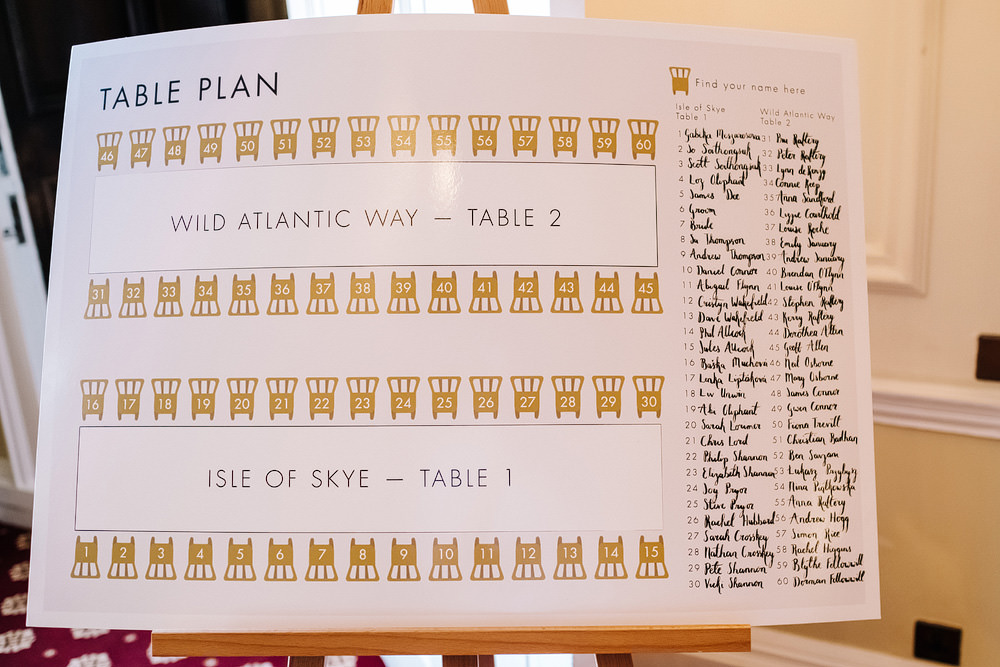 TABLE PLAN
46 47 48 49 50 51 52 53 54 55 56 57 58 59 60
WILD ATLANTIC WAY – TABLE 2
31 32 33 34 35 36 37 38 39 40 41 42 43 44 45
16 17 18 19 20 21 22 23 24 25 26 27 28 29 30
ISLE OF SKYE – TABLE 1
1 2 3 4 5 6 7 8 9 10 11 12 13 14 15
Find your name here
Isle of Skye
Table 1
1
2 Jo
3 Scott
4 Loz Oliphant
5 James Dee
6 Groom
7 Bride
8 Su Thompson
9 Andrew Thompson
10 Daniel Connor
11 Abigail Flynn
12 Cristyn Wakefield
13 Dave Wakefield
14 Phil Allcock
15 Jules Allcock
16 Muchová
17 Lenka Liptáková
18 Liv Unwin
19 Oliphant
20 Sarah Lorimer
21 Chris Lord
22 Philip Shannon
23 Elizabeth Shannon
24 Joy Pryor
25 Steve Pryor
26 Rachel Hubbard
27 Sarah Crosskey
28 Nathan Crosskey
29 Pete Shannon
30 Vicki Shannon
Wild Atlantic Way
Table 2
31 Raftery
32 Peter Raftery
33 Lynn
34 Connie Keep
35 Anna Sandford
36 Lizzie
37 Louise Roche
38 Emily January
39 Andrew January
40 Brendan O'Flynn
41 Louise O'Flynn
42 Stephen Raftery
43 Kerry Raftery
44 Dorothea Allen
45 Geoff Allen
46 Neil Osborne
47 Mary Osborne
48 James Connor
49 Gwen Connor
50 Fiona Trevill
51 Christian Badhan
52 Ben
53 Lukasz
54 Nina
55 Anna Raftery
56 Andrew Hogg
57 Simon Rice
58 Rachel Higgins
59 Blythe Fellowwell
60 Dorman Fellowwell